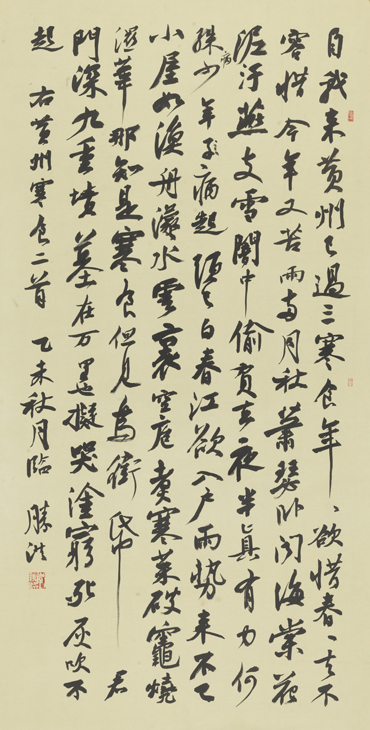 自我来黄州已過三寒食年、欲惜春、去不
容惜今年又苦雨兩月秋蕭瑟卧聞海棠花
泥汙燕支雪闇中偷負去夜半真有力何
殊病少年子病起須已白春江欲入户雨勢来不已
小屋如漁舟濛水雲裏空庖煮寒菜破竈燒
濕葦那知是寒食但見烏銜帋君
門深九重墳墓在万里也擬哭塗窮死灰吹不
起 右黄州寒食二首 乙未秋月臨 勝洪